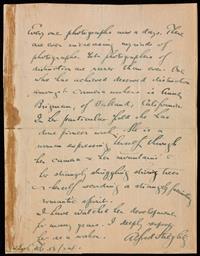 Every one photographs now a days. There
are ever increasing myriads of
photographs. Yet photographers of
distinction are rarer than ever. One
who has achieved deserved distinction
amongst camera workers is Annie
Brigman, of Oakland, California.
In her particular field she has
done pioneer work. She is a
woman expressing herself through
her camera & her mountains &
her strangely struggling strong trees
& herself sending a strangely
romantic spirit.
I have watched her development
for many years. I deeply respect
her as a worker.
Alfred Stieglitz